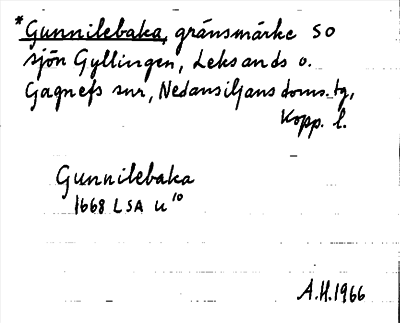 *Gunnilebaka, gränsmärke SO
sjön Gyllingen, Leksands o.
Gagnefs snr, Nedansiljans doms. tg,
Kopp. l.
Gunnilebaka
1668 LSA U¹⁰
A.H. 1966